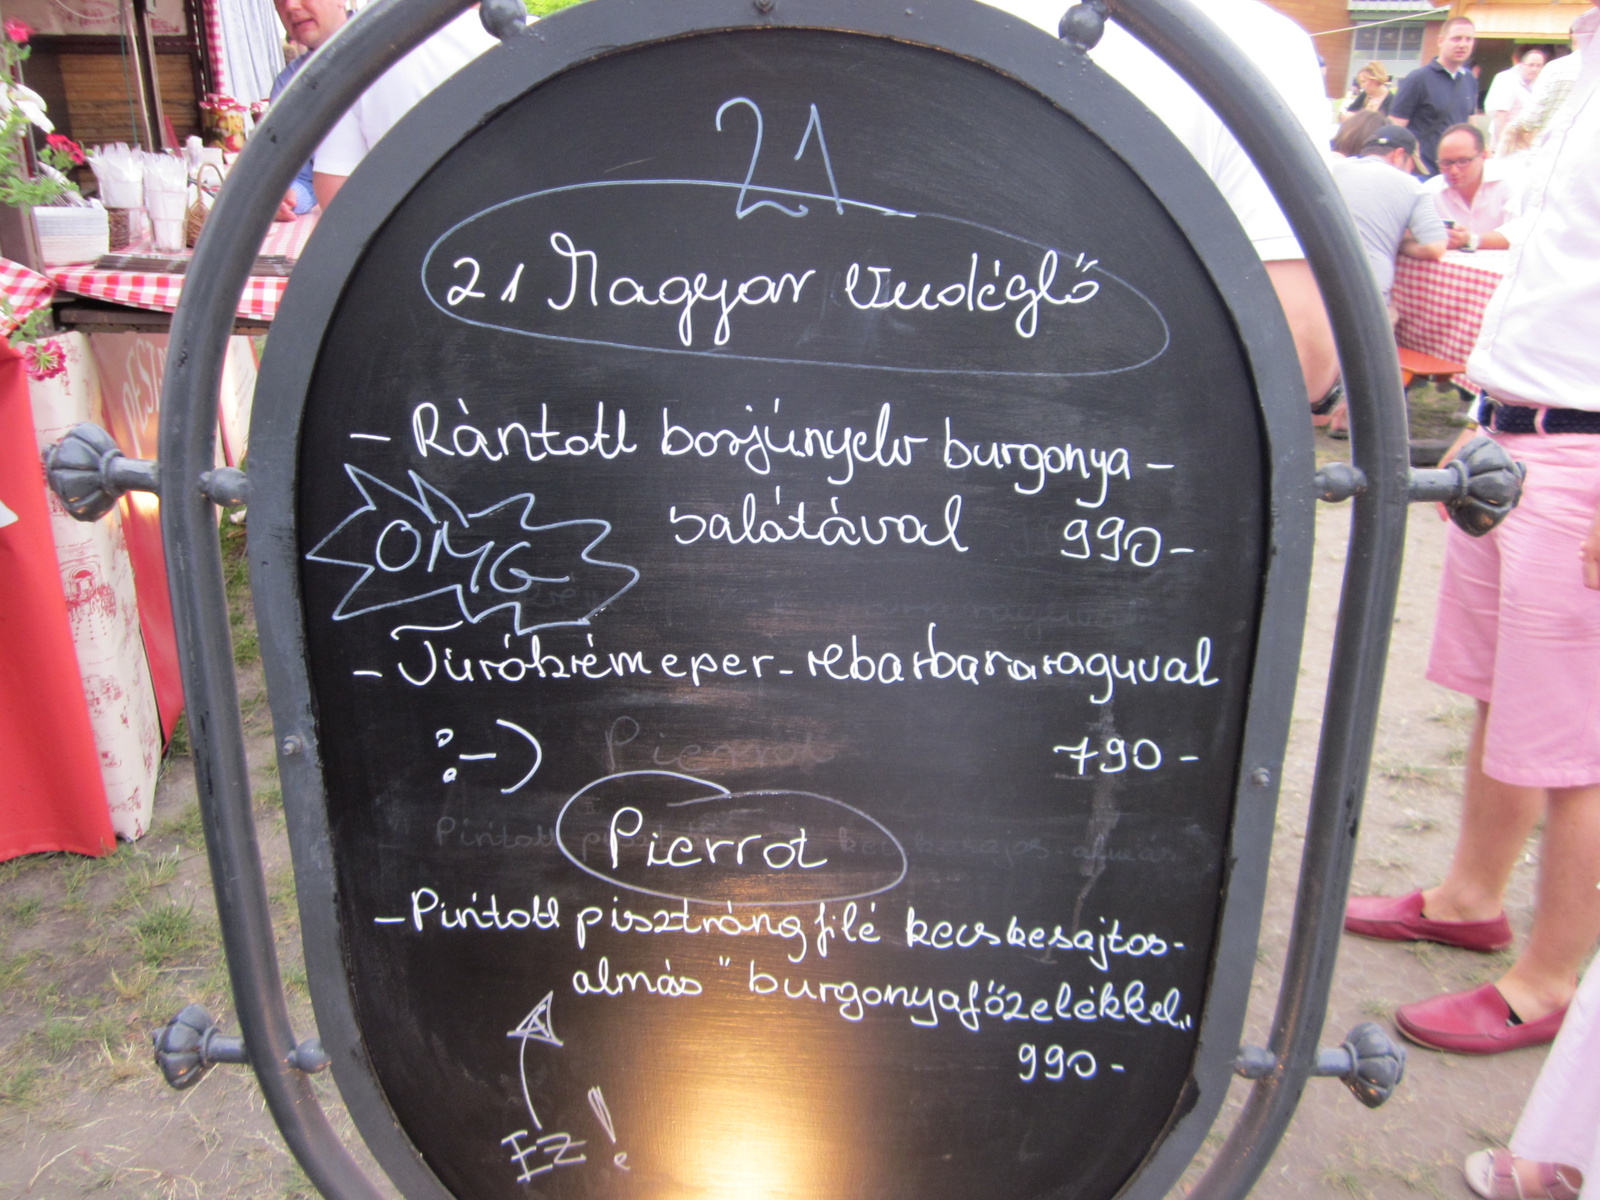 21
21 Magyar Vendéglő
- Rántott borjúnyelv burgonya-
salátával 990-
OMG
- Túrókrém eper-rebarbararaguval
:-) 790-
Pierrot
- Pirított pisztráng filé kecskesajtos-
almás "burgonyafőzelékkel"
990-
EZ!